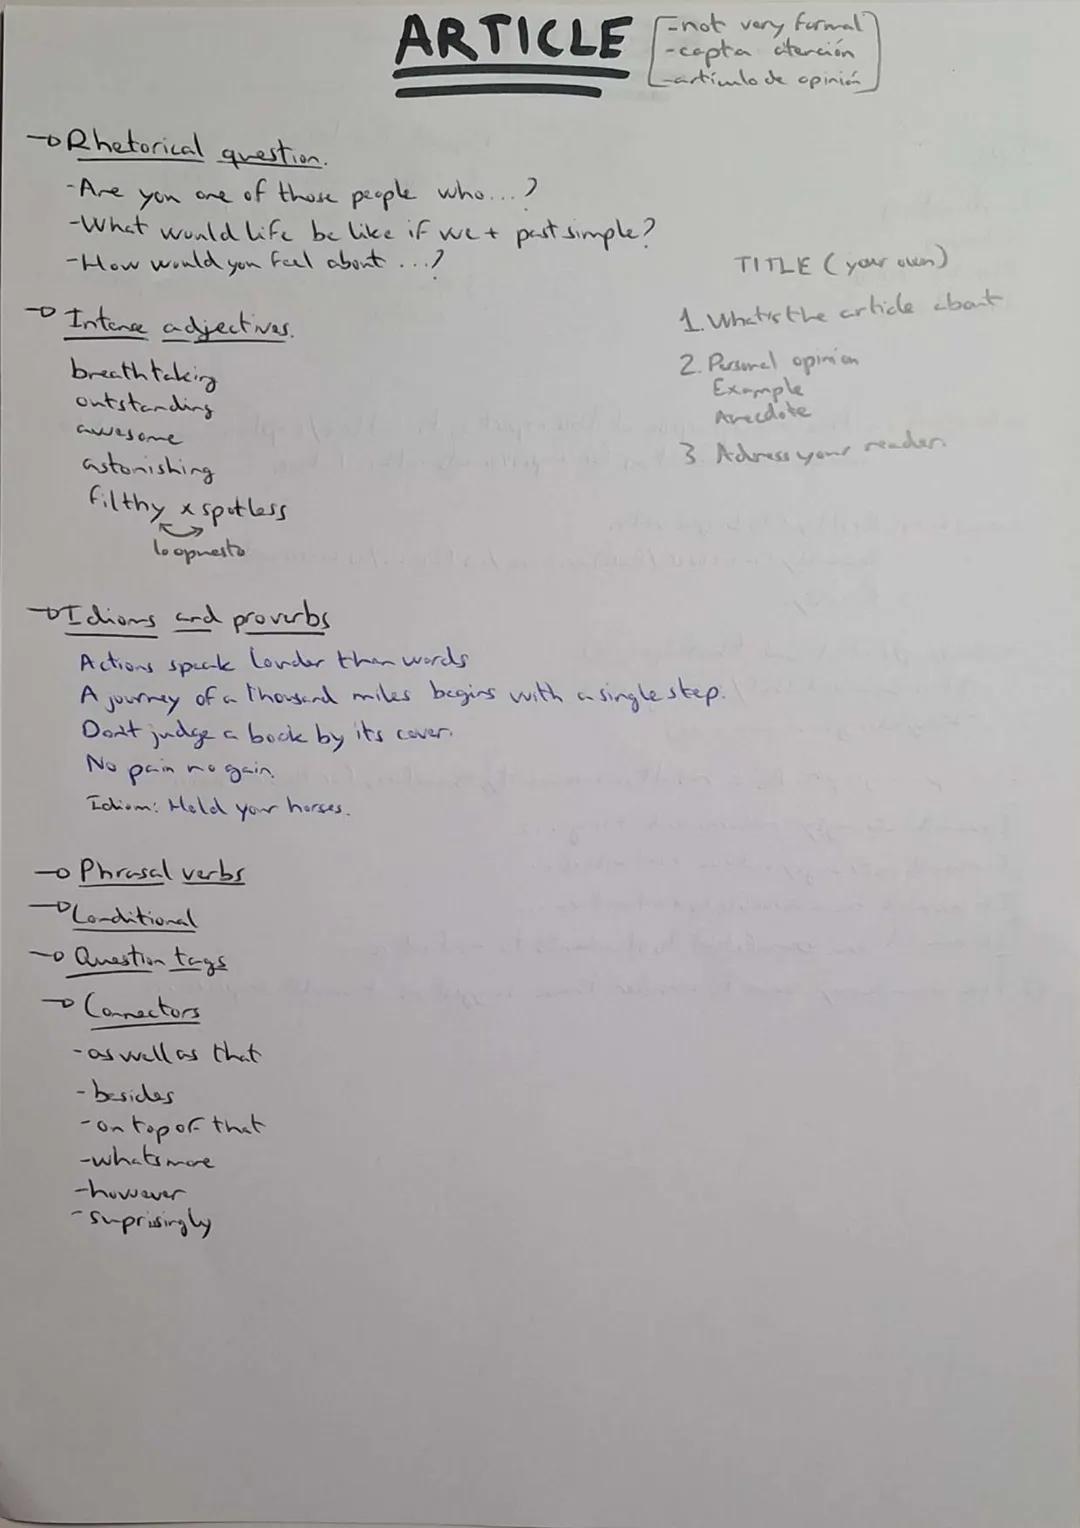 ARTICLE
-not very formal
-capta atención
-artículo de opinión
Rhetorical question.
-Are you one of those people who...?
-What would life be like if we + past simple?
-How would you feel about ...?
TITLE (your own)
1. What's the article about
2. Personal opinion
Example
Anecdote
3. Adress your reader.
Intense adjectives.
breathtaking
outstanding
awesome
astonishing
filthy x spotless
lo opuesto
Idioms and proverbs
Actions speak louder than words
A journey of a thousand miles begins with a single step.
Don't judge a book by its cover.
No pain no gain.
Idiom: Hold your horses.
Phrasal verbs
Conditional
Question tags
Connectors
-as well as that
-besides
-on top of that
-whats more
-however
-suprisingly